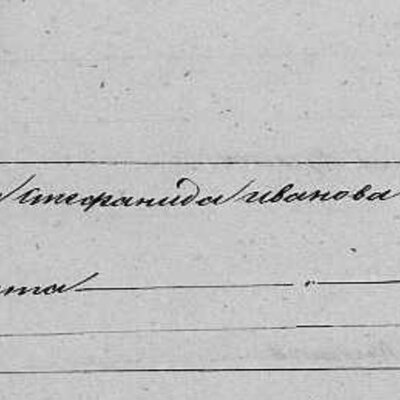 Стефанида Иванова